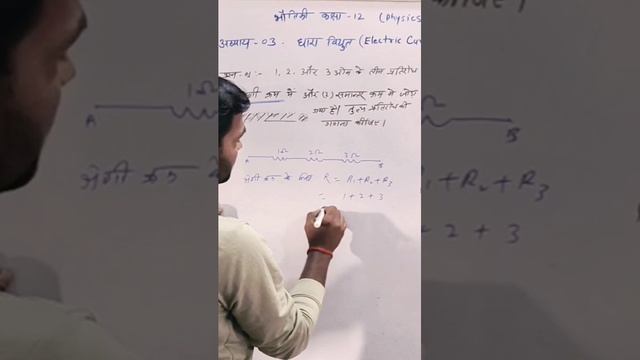 भौतिकी कक्षा-12 (Physics
अध्याय-03. धारा विद्युत (Electric Cur
1, 2 और 3 ओम के तीन प्रतिरोध
क्रम में और (2) समान्तर क्रम में जोड़े
गया है। तुल्य प्रतिरोध की
गणना कीजिए।
1Ω 2Ω 3Ω
A B
श्रेणी क्रम के लिए R = R₁+R₂+R₃
= 1+2+3